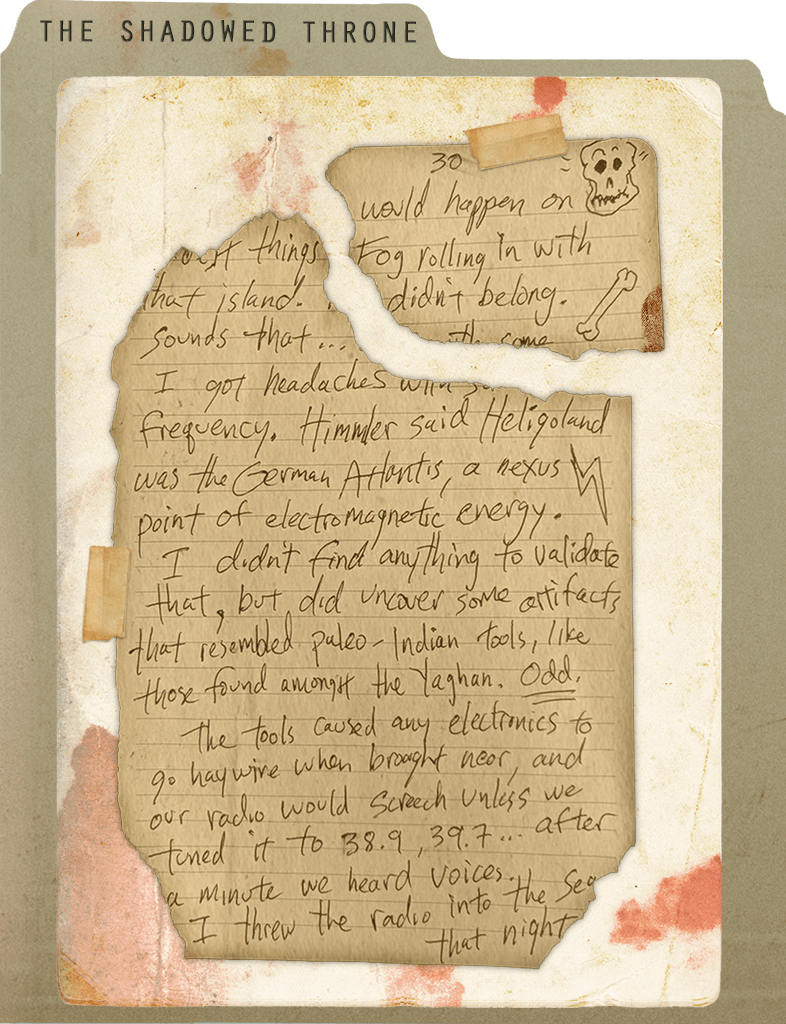 THE SHADOWED THRONE
30
would happen on
things Fog rolling in with
that island. didn't belong.
sounds that... some
I got headaches with
frequency. Himmler said Heligoland
was the German Atlantis, a nexus
point of electromagnetic energy.
I didn't find anything to validate
that, but did uncover some artifacts
that resembled paleo-Indian tools, like
those found amongst the Yaghan. Odd.
The tools caused any electronics to
go haywire when brought near, and
our radio would screech unless we
tuned it to 38.9, 39.7... after
a minute we heard voices.
I threw the radio into the Sea
that night